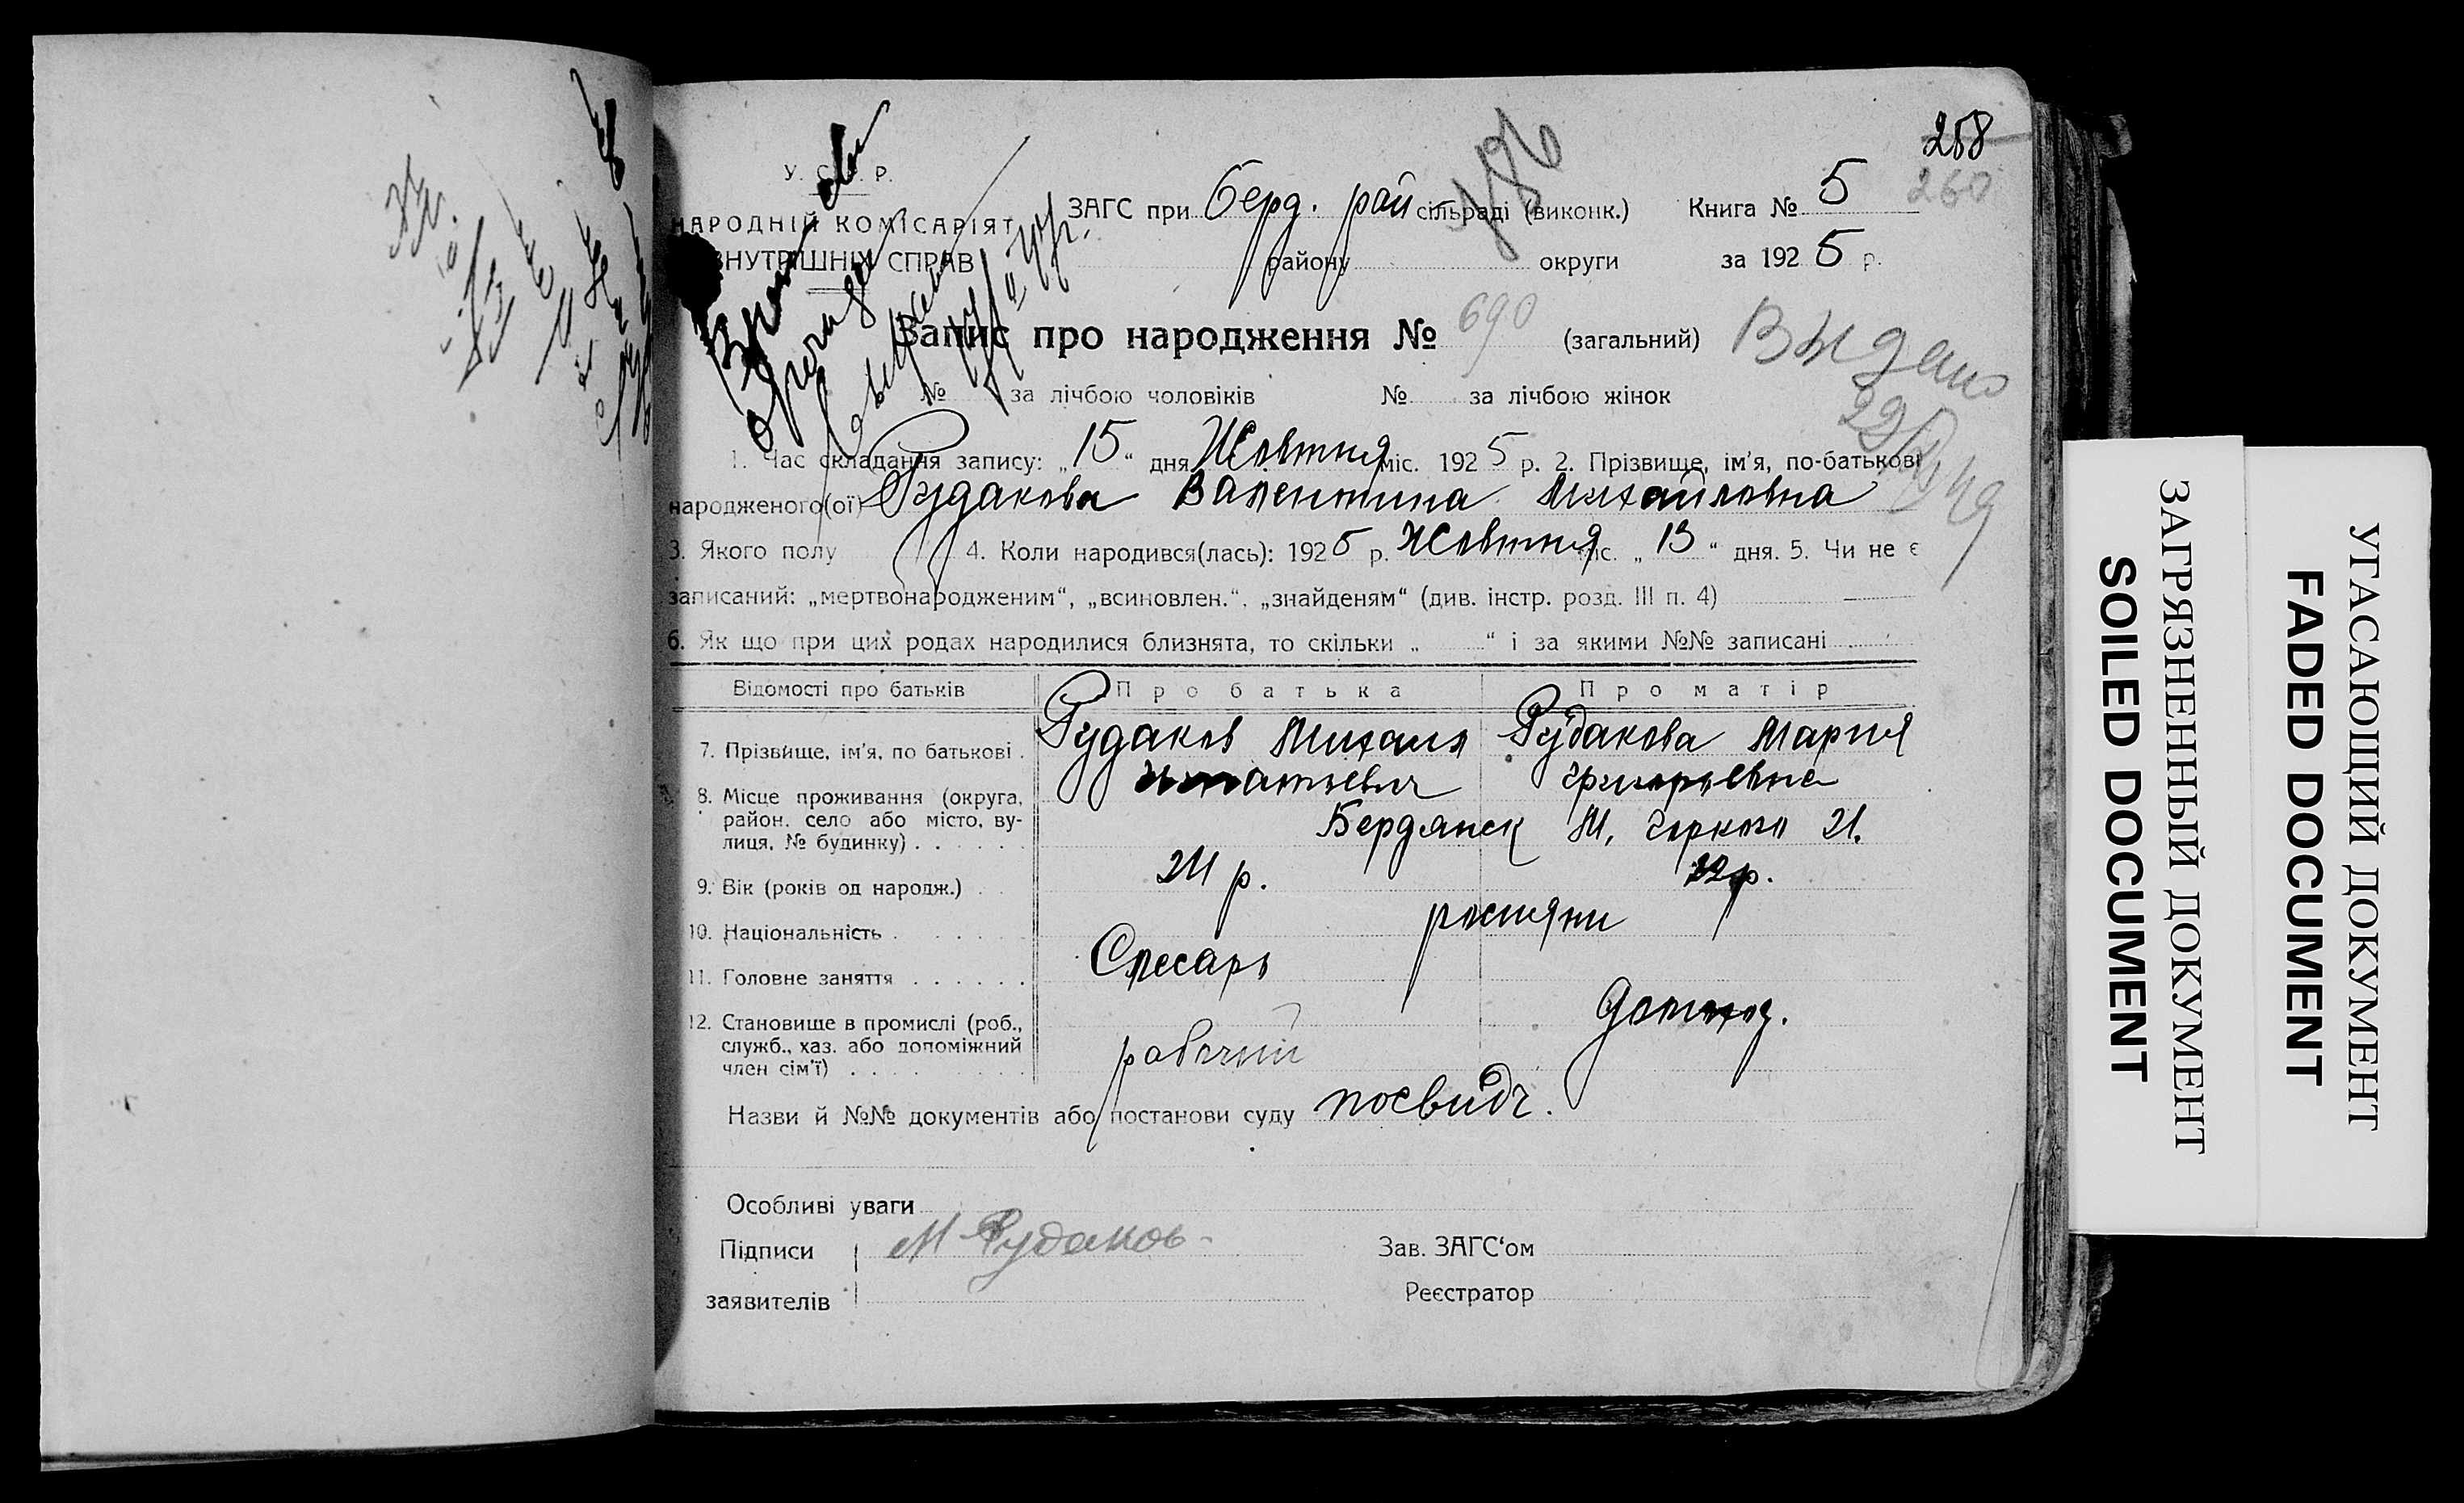 258
260
186
У. С. Р. Р.
НАРОДНІЙ КОМІСАРІЯТ
ВНУТРІШНІХ СПРАВ
ЗАГС при берд. рай сільраді (виконк.) Книга № 5
району округи за 1925 р.
Запис про народження № 690 (загальний)
Видано
№ за лічбою чоловіків № за лічбою жінок
1. Час складання запису: „15“ дня Жовтня міс. 1925 р. 2. Прізвище, ім'я, по-батькові
народженого(ої) Рудакова Валентина Михайловна
3. Якого полу 4. Коли народився(лась): 1925 р. Жовтня міс. „13“ дня. 5. Чи не є
записаний: „мертвонародженим“, „всиновлен.“, „знайденям“ (див. інстр. розд. III п. 4) —
6. Як що при цих родах народилися близнята, то скільки „ “ і за якими №№ записані
Відомості про батьків Про батька Про матір
7. Прізвище, ім'я, по батькові . Рудаков Михаил Рудакова Мария
Григорьевна
8. Місце проживання (округа, район, село або місто, вулиця, № будинку) . . . . . . Бердянск М. Горького 21.
9. Вік (років од народж.) . . 24 р. 22 р.
10. Національність . . . . . . росияни
11. Головне заняття . . . . . . Слесарь
12. Становище в промислі (роб., служб., хаз. або допоміжний член сім'ї) . . . . . . рабочий
Назви й №№ документів або постанови суду посвидч.
Особливі уваги
Підписи М Рудаков Зав. ЗАГС'ом
заявителів Реєстратор
ЗАГРЯЗНЕННЫЙ ДОКУМЕНТ
SOILED DOCUMENT
УГАСАЮЩИЙ ДОКУМЕНТ
FADED DOCUMENT